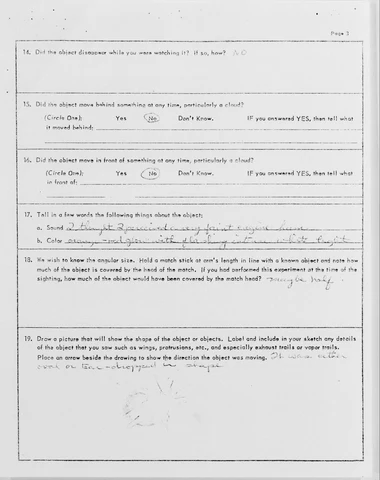 Page 3
14. Did the object disappear while you were watching it? If so, how? NO
15. Did the object move behind something at any time, particularly a cloud?
(Circle One): Yes No Don't Know. IF you answered YES, then tell what
it moved behind:
16. Did the object move in front of something at any time, particularly a cloud?
(Circle One): Yes No Don't Know. IF you answered YES, then tell what
in front of:
17. Tell in a few words the following things about the object:
a. Sound I thought I perceived a very faint
b. Color with flashing white light
18. We wish to know the angular size. Hold a match stick at arm's length in line with a known object and note how
much of the object is covered by the head of the match. If you had performed this experiment at the time of the
sighting, how much of the object would have been covered by the match head? maybe half
19. Draw a picture that will show the shape of the object or objects. Label and include in your sketch any details
of the object that you saw such as wings, protrusions, etc., and especially exhaust trails or vapor trails.
Place an arrow beside the drawing to show the direction the object was moving. It was either
oval or tear-dropped in shape